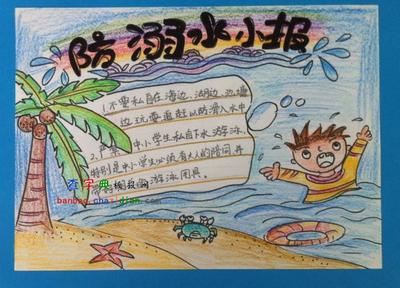 防溺水小报
1.不要私自在海边、湖边、池塘
边玩耍追赶以防滑入水中
2.严禁中小学生私自下水游泳,
特别是中小学生必须有大人的陪同并
游泳用具。
查字典手抄报网
banbao.chazidian.com